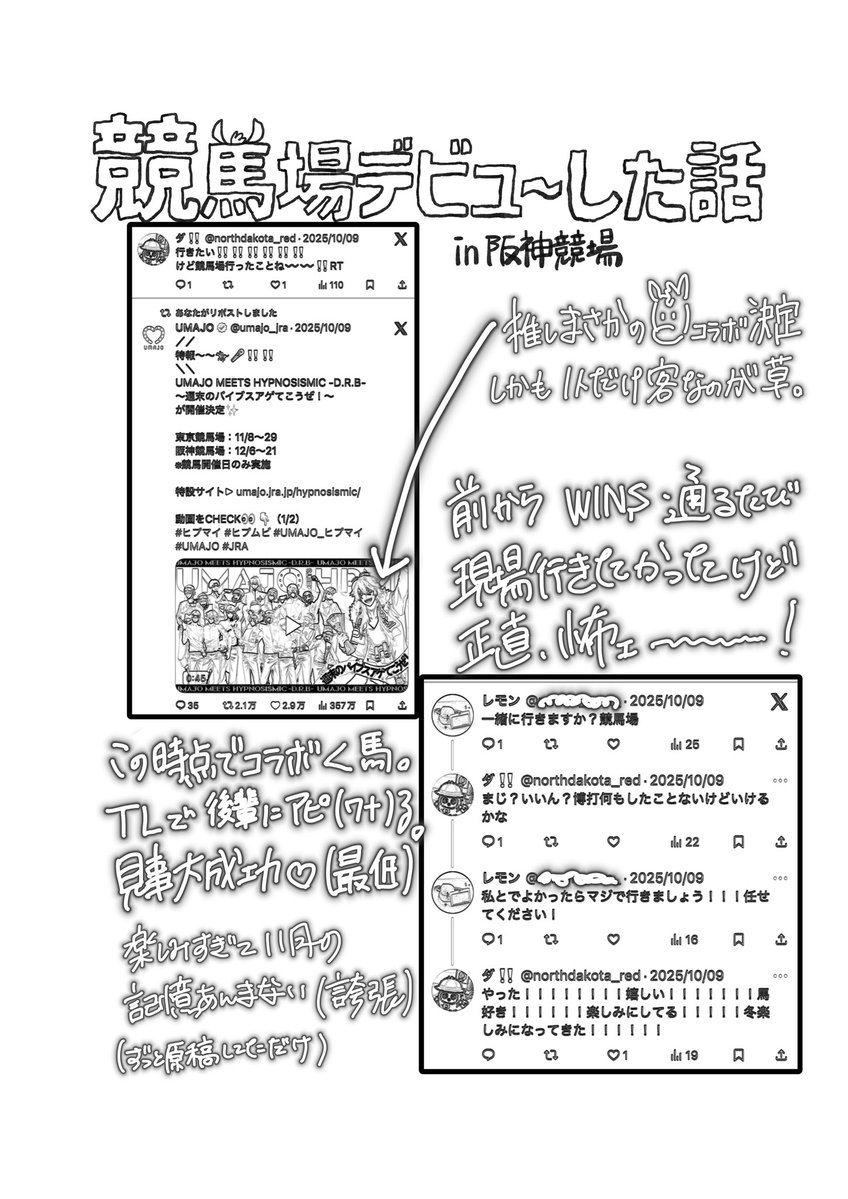 競馬場デビュ〜した話
in 阪神競場
ダ‼ @northdakota_red · 2025/10/09
行きたい‼‼‼‼‼‼
けど競馬場行ったことね〰〰‼RT
1 1 110
あなたがリポストしました
UMAJO @umajo_jra · 2025/10/09
UMAJO
//
特報〜〜🐎🎤‼‼
\\
UMAJO MEETS HYPNOSISMIC -D.R.B-
〜週末のバイブスアゲてこうぜ！〜
が開催決定✨
東京競馬場：11/8〜29
阪神競馬場：12/6〜21
※競馬開催日のみ実施
特設サイト▷ umajo.jra.jp/hypnosismic/
動画をCHECK👀👇（1/2）
#ヒプマイ #ヒプムビ #UMAJO_ヒプマイ
#UMAJO #JRA
MAJO MEETS HYPNOSISMIC -D.R.B- UMAJO MEETS H
週末のバイブスアゲてこうぜ
0:45
MAJO MEETS HYPNOSISMIC -D.R.B- UMAJO MEETS H
35 2.1万 2.9万 357万
推しまさかのコラボ決定
しかも1人だけ客なのが草。
前から WINS 通るたび
現場行きたかったけど
正直、怖ェ〜〜！
レモン @ · 2025/10/09
一緒に行きますか？競馬場
1 25
ダ‼ @northdakota_red · 2025/10/09
まじ？いいん？博打何もしたことないけどいける
かな
1 22
レモン @ · 2025/10/09
私とでよかったらマジで行きましょう！！！任せ
てください！
1 16
ダ‼ @northdakota_red · 2025/10/09
やった！！！！！！！！嬉しい！！！！！！！馬
好き！！！！！！楽しみにしてる！！！！！冬楽
しみになってきた！！！！！！
1 19
この時点でコラボく馬。
TLで後輩にアピ(ワナ)る。
見事大成功♡(最低)
楽しみすぎて11月の
記憶あんまない(誇張)
(ずっと原稿してただけ)